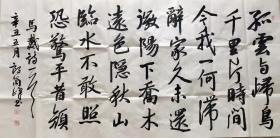 孤雲與歸鳥
千里片時間
今我一何滯
辭家久未還
微陽下喬木
遠色隱秋山
臨水不敢照
恐驚平昔顏
馬戴詩
辛丑五月
書